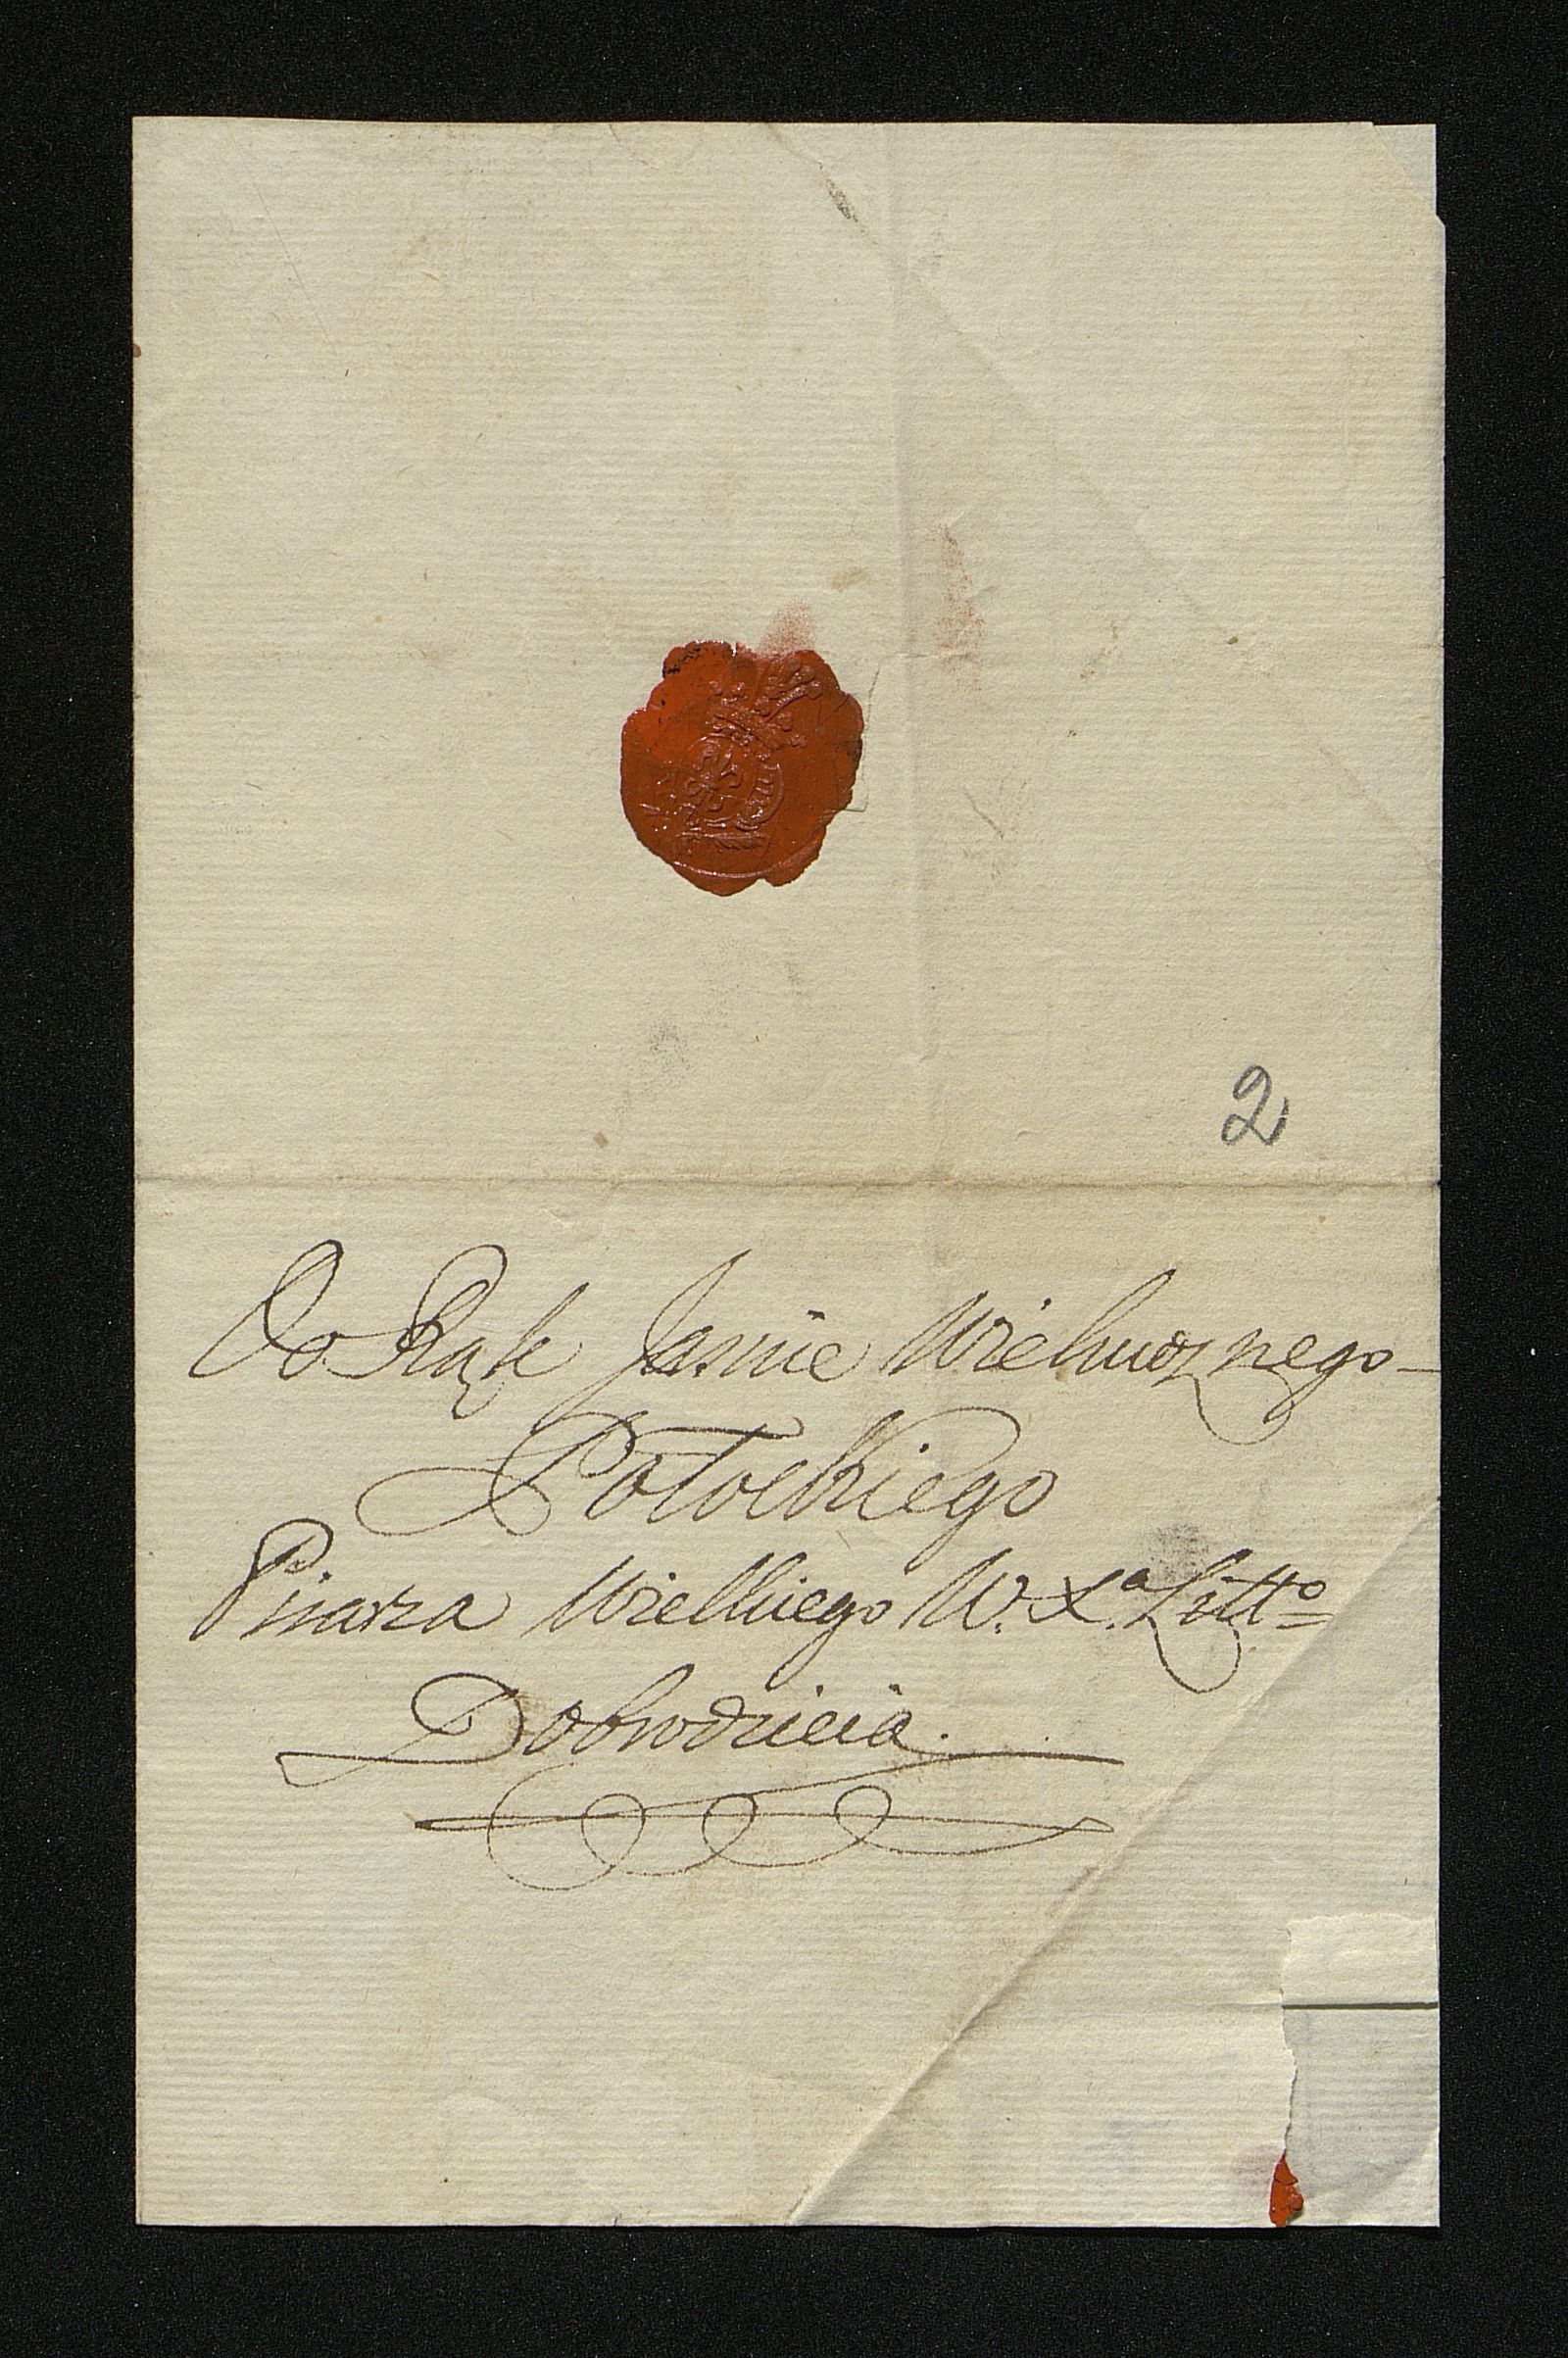 2
Do Rąk Jasnie Wielmożnego
Potockiego
Pisarza Wielkiego W. Xa. Litto
Dobrodzieia.